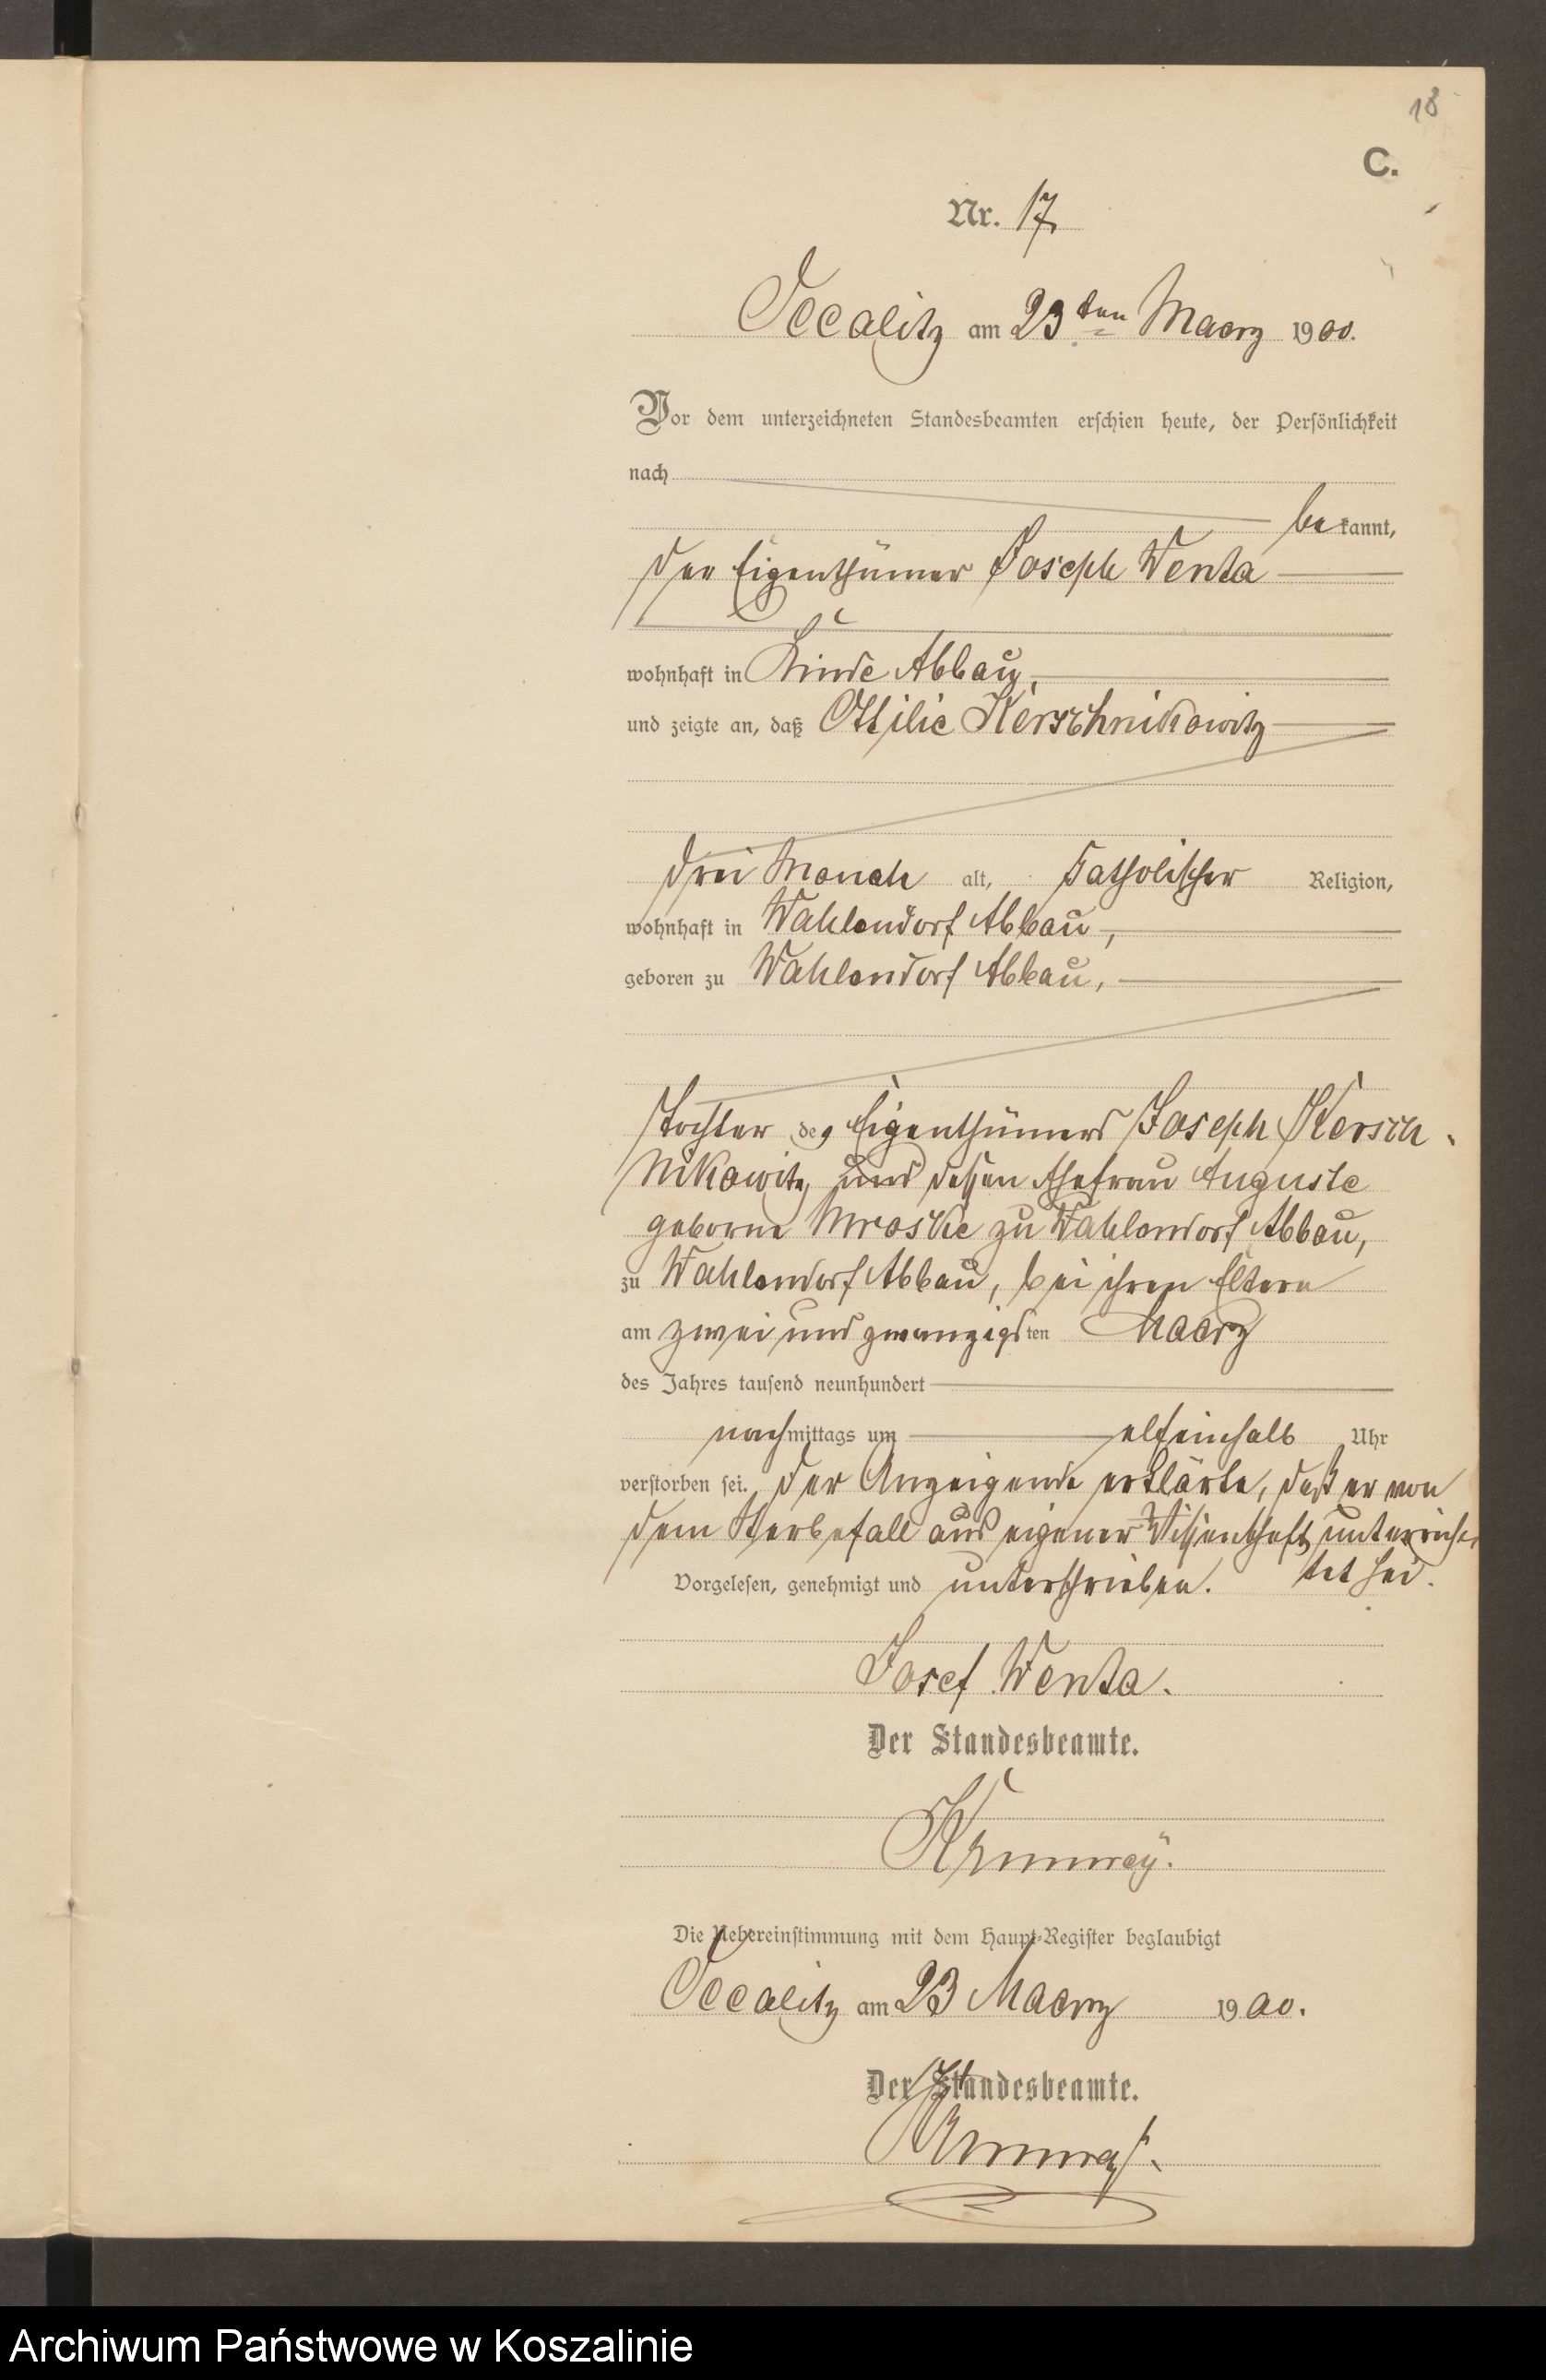 18
C.
Nr. 17
Occalitz am 23ten Maerz 1900.
Vor dem unterzeichneten Standesbeamten erschien heute, der Persönlichkeit
nach
bekannt,
der Eigenthümer Joseph Wenta
wohnhaft in Linde Abbau,
und zeigte an, daß Ottilie Kerschnikowitz
drei Monate alt, katholischer Religion,
wohnhaft in Wahlendorf Abbau,
geboren zu Wahlendorf Abbau,
Tochter des Eigenthümers Joseph Kersch-
nikowitz und dessen Ehefrau Auguste
geborne Mroske zu Wahlendorf Abbau,
zu Wahlendorf Abbau, bei ihren Eltern
am zwei und zwanzigsten Maerz
des Jahres tausend neunhundert
nachmittags um elfeinhalb Uhr
verstorben sei. Der Anzeigende erklärte, daß er von
dem Sterbefall aus eigener Wissenschaft unterrich-
Vorgelesen, genehmigt und unterschrieben. tet sei.
Josef Wenta.
Der Standesbeamte.
Die Uebereinstimmung mit dem Haupt-Register beglaubigt
Occalitz am 23 Maerz 1900.
Der Standesbeamte.
Archiwum Państwowe w Koszalinie